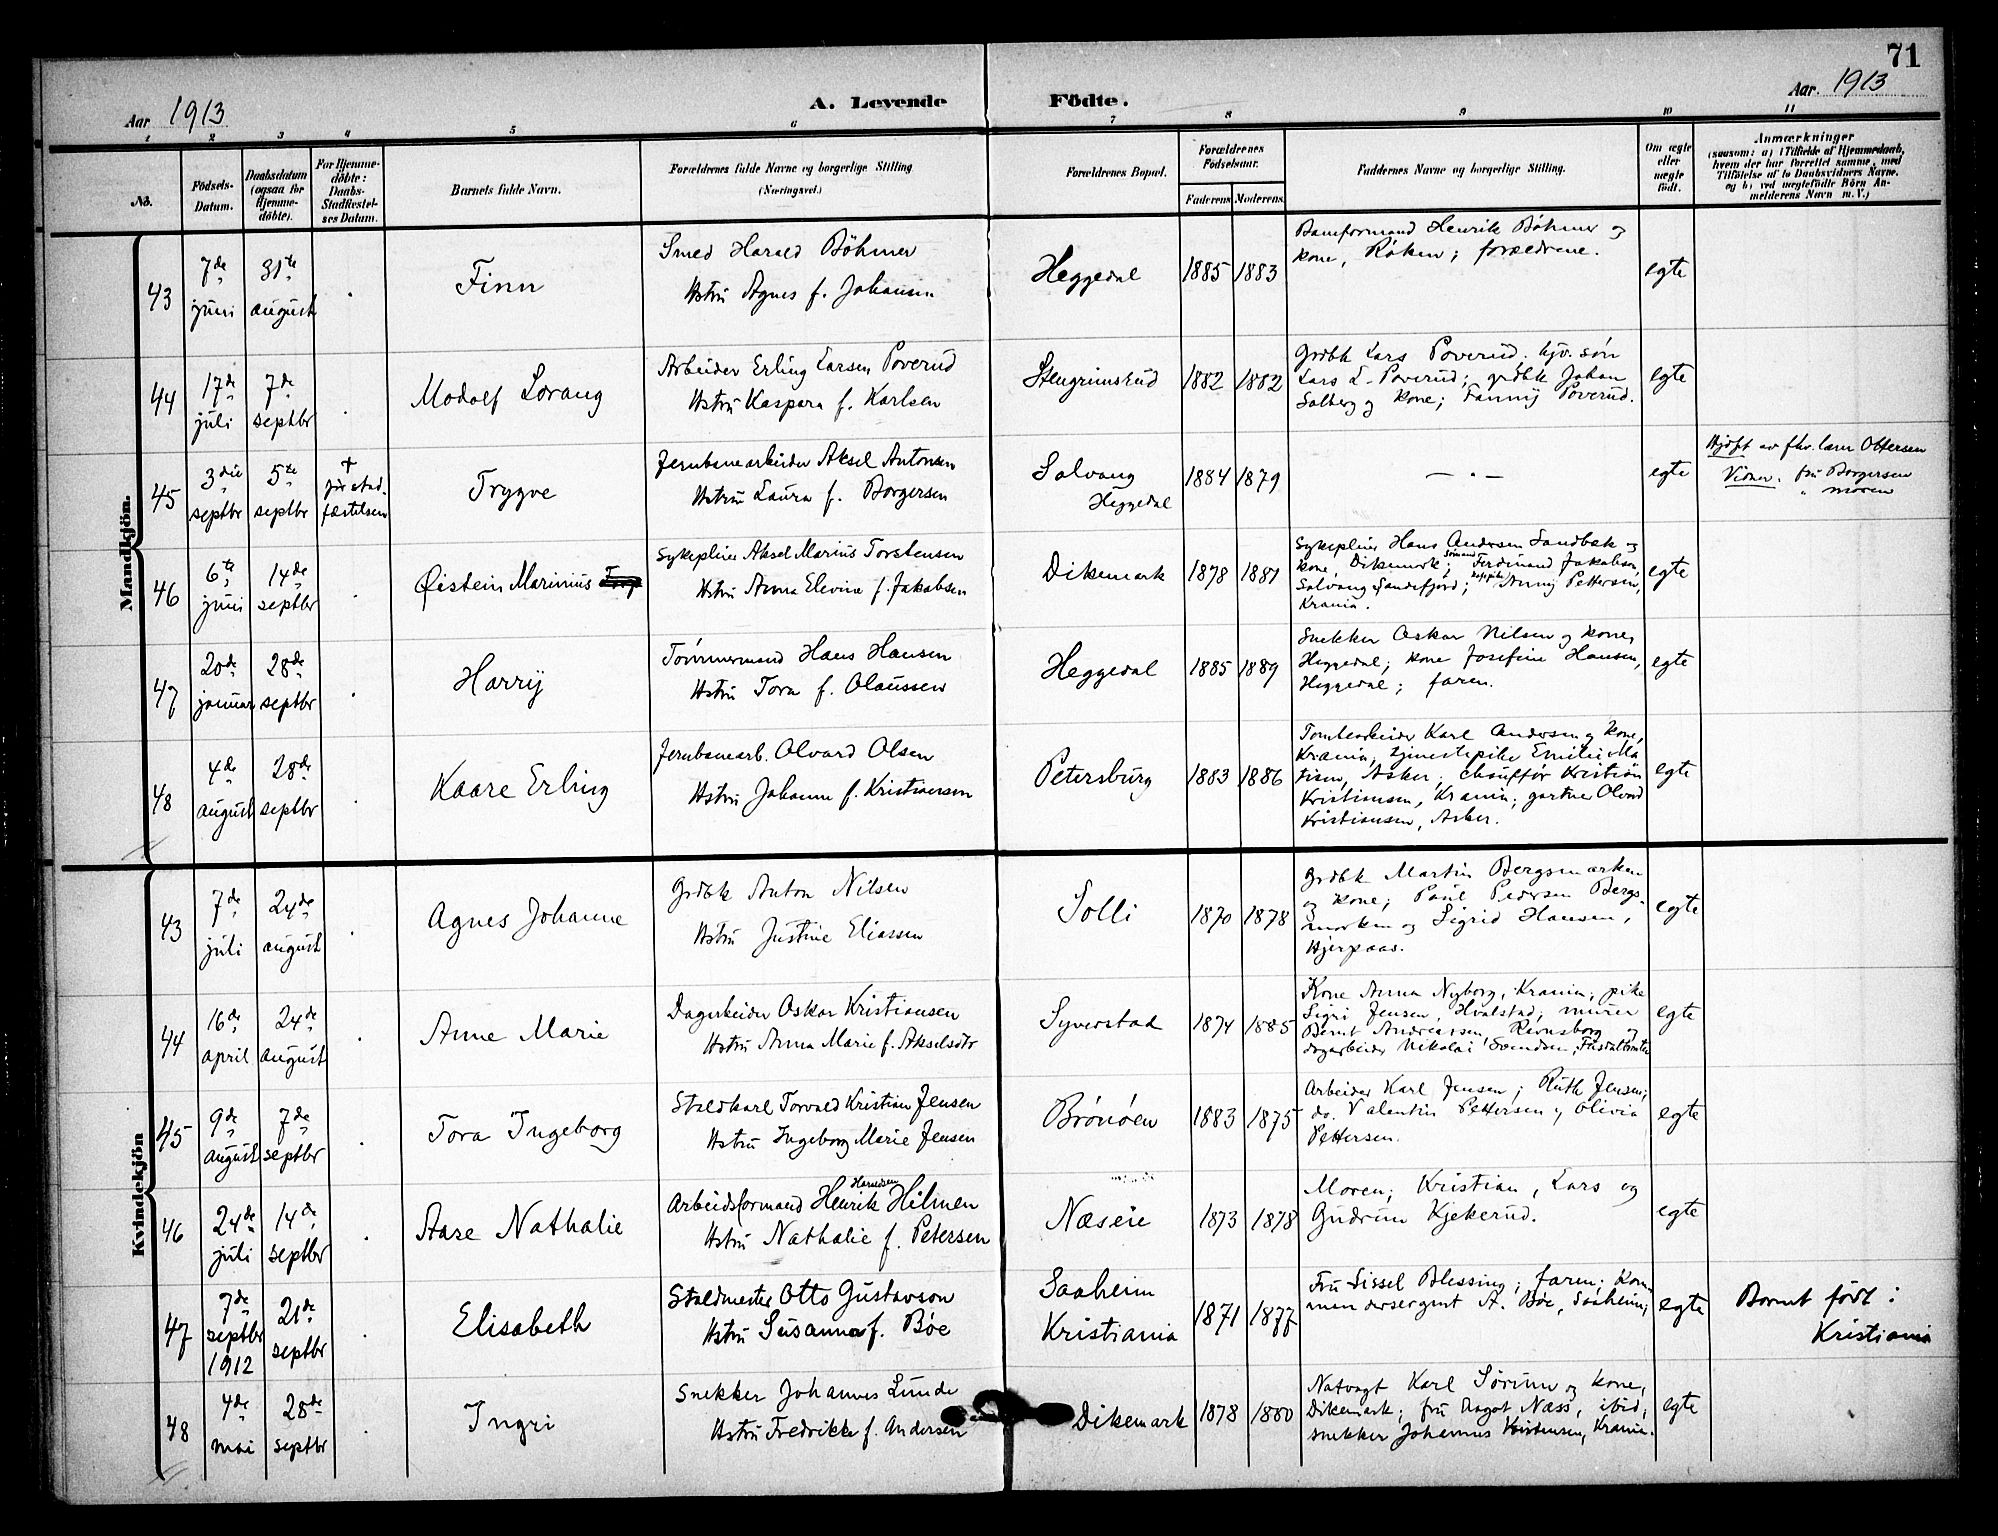 71
Aar 1913
A. Levende
Födte.
Aar. 1913
1 2 3 4 5 6 7 8 9 10 11
No.
Födsels-Datum.
Daabsdatum (ogsaa for hjemme-döbte).
For Hjemme-döbte: Daabs-Stadfæstel-ses Datum.
Barnets fulde Navn.
Forældrenes fulde Navne og borgerlige Stilling (Næringsvei.)
Forældrenes Bopæl.
Forældrenes Födselsaar.
Faderens Moderens
Faddernes Navne og borgerlige Stilling.
Om ægte eller uægte födt.
Anmærkninger
(saasom: a) i Tilfælde af Hjemmedaab,
hvem der har forrettet samme, med
Tilföielse af to Daabsvidners Navne.
og b) ved uægtefödte Börn An-
melderens Navn m. V.)
Mandkjön.
43 7de juni 31te august . Finn
Smed Harald Böhmer
Hstru Agnes f. Johansen
Heggedal 1885 1883
Banformand Henrik Böhmer og
kone, Röken; forældrene.
egte
44 17de juli 7de septbr . Modolf Lorang
Arbeider Erling Larsen Poverud
Hstru Kaspara f. Karlsen
Stengrimsrud 1882 1882
Grdbk Lars Poverud. hjv. sön
Lars L. Poverud; grdbk Johan
Solberg og kone; Fanny Poverud.
egte
45 3die septbr 5te septbr + för stad-fæstelsen Trygve
Jernbanearbeider Aksel Antonsen
Hstru Laura f. Borgersen
Solvang
Heggedal
1884 1879
— . —
egte
Hjdft av fhv. lærer Ottersen
Vidner. fru Borgersen
" moren
46 6te juni 14de septbr . Øistein Marinius
Sykepleier Aksel Marius Torstensen
Hstru Anna Elevine f. Jakobsen
Dikemark 1878 1881
Sykepleier Hans Andersen Sandbæk og
kone, Dikemark; sömand Ferdinand Jakobsen,
Solvang Sandefjord; Anny Pettersen,
Krania.
egte
47 20de januar 28de septbr . Harry
Tömmermand Hans Hansen
Hstru Tora f. Olaussen
Heggedal 1885 1889
Snekker Oskar Nilsen og kone,
Heggedal; kone Josefine Hansen,
Heggedal; faren.
egte
48 4de august 28de septbr . Kaare Erling
Jernbanearb. Olvard Olsen
Hstru Johanne f. Kristiansen
Petersburg 1883 1886
Tomtearbeider Karl Andersen og kone,
Krania, tjenestepike Emilie Ma
tisen, Asker; chaufför Kristian
Kristiansen, Krania; gartner Olvard
Kristiansen, Asker.
egte
Kvindekjön
43 7de juli 24de august . Agnes Johanne
Grdbk Anton Nilsen
Hstru Justine Eliassen
Solli 1870 1878
Grdbk Martin Bergsmarken
og kone; Paul Pedersen Bergs-
marken og Sigrid Hansen,
Hjerpaas.
egte
44 16de april 24de august . Anne Marie
Dagarbeider Oskar Kristiansen
Hstru Anna Marie f. Akselsdtr
Syverstad 1874 1885
Kone Anna Nyborg, Krania; pike
Sigri Jensen, Hvalstad; murer
Bernt Andreassen, og
dagarbeider Nikolai Svendsen,
egte
45 9de august 7de septbr . Tora Ingeborg
Staldkarl Torvald Kristian Jensen
Hstru Ingeborg Marie Jensen
Brönöen 1883 1875
Arbeider Karl Jensen; Ruth Jensen;
do. Valentin Pettersen og Olivia
Pettersen.
egte
46 24de juli 14de septbr . Aase Nathalie
Haraldsen
Arbeidsformand Henrik Hilmen
Hstru Nathalie f. Petersen
Næseie 1873 1878
Moren; Kristian, Lars og
Gudrun Kjekerud.
egte
47 7de septbr 1912 21de septbr . Elisabeth
Staldmester Otto Gustavson
Hstru Susanna f. Böe
Saaheim
Kristiania
1871 1877
Fru Sissel Blessing; faren; Kom
mandersergent A. Böe, Saaheim;
egte
Barnet född i
Kristiania
48 4de mai 28de septbr . Ingri
Snekker Johannes Lunde
Hstru Fredrikke f. Andersen
Dikemark 1878 1880
Natvagt Karl Sörum og kone,
Dikemark; fru Aagot Næss, ibid,
snekker Johannes Kristensen, Krania.
egte